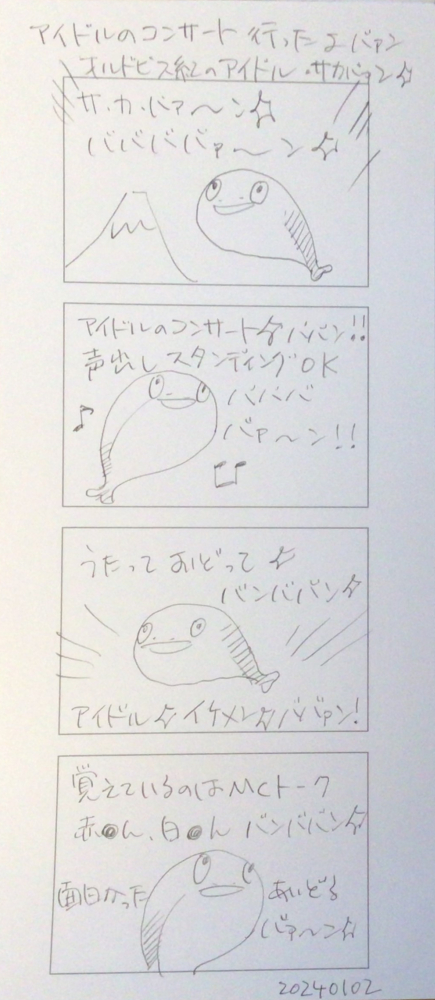 アイドルのコンサート行ったよバァン
オルドビス紀のアイドル・サカバァン☆
サ・カ・バァ〜ン☆
バババババァ〜ン☆
アイドルのコンサート☆ババン!!
声出しスタンディングOK
バババ
バァ〜ン!!
うたっておどって☆
バンババン☆
アイドル☆イケメン☆ババァン!
覚えているのはMCトーク
赤●ん、白●ん バンババン☆
面白かった
あいどる
バァ〜ン☆
20240102